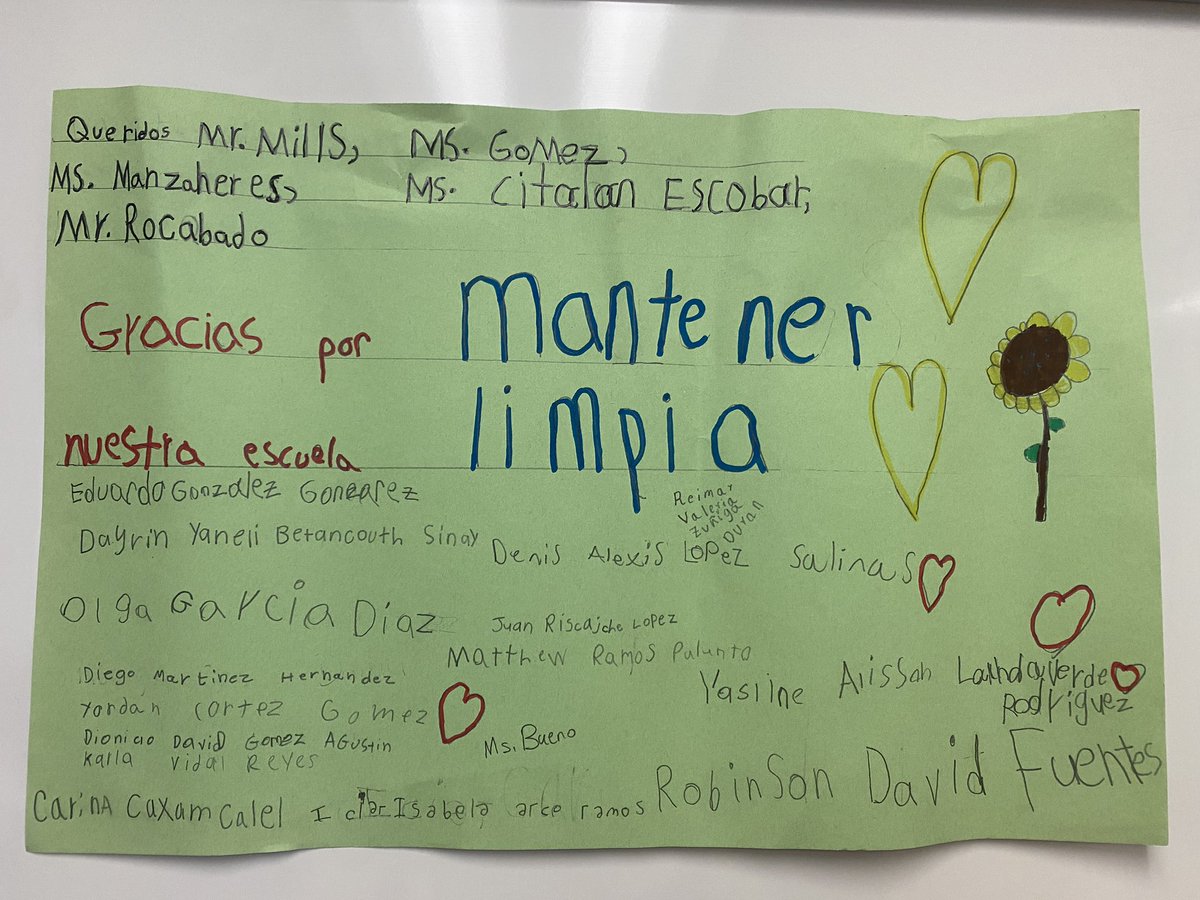 Queridos Mr. Mills, Ms. Gomez,
Ms. Manzaheres, Ms. Citalan Escobar,
Mr. Rocabado
Gracias por mantener
nuestra escuela limpia
Eduardo Gonzalez Gonzarez
Reimar
Valeria
Zuñiga
Duran
Dayrin Yaneli Betancouth Sinay
Denis Alexis Lopez Salinas
Olga Garcia Díaz
Juan Riscajche Lopez
Matthew Ramos Palunto
Diego Martinez Hernandez
Yordan Cortez Gomez
Dionicio David Gomez Agustin
Karla Vidal Reyes
Ms. Bueno
Yasline Arissah
Rodriguez
Carina Caxam Calel
Isabela arce ramos
Robinson David Fuentes